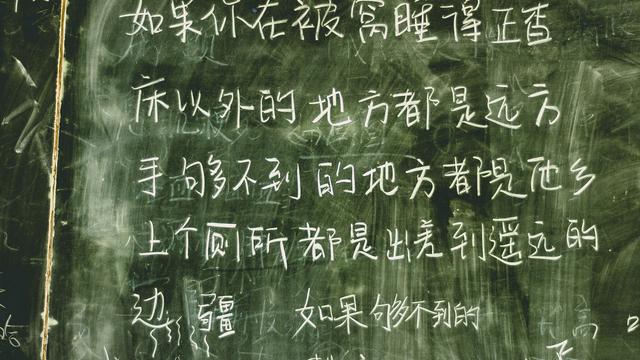 如果你在被窝睡得正香
床以外的地方都是远方
手够不到的地方都是他乡
上个厕所都是出差到遥远的
边疆 如果够不到的